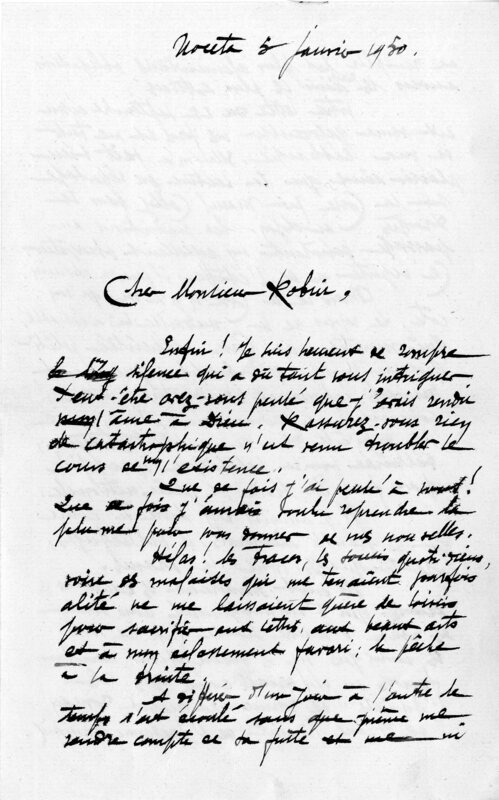 5 janvier 1950.
Cher Monsieur Robin,
Enfin ! Je suis heureux de rompre
silence qui a dû tant vous intriguer
Peut-être avez-vous pensé que j'avais rendu
l'âme à Dieu. Rassurez-vous rien
de catastrophique n'est venu troubler le
cours de l'existence.
Que de fois j'ai pensé à vous !
Que de fois j'aurais voulu reprendre la
plume pour vous donner de nos nouvelles.
Hélas ! les tracas, les soucis quotidiens,
voire des malaises qui me tenaient parfois
alité ne me laissaient guère de loisirs
pour sacrifier aux lettres, aux beaux arts
et à mon délassement favori : la pêche
à la
Et différer d'un jour à l'autre le
temps s'est écoulé sans que j'aie pu me
rendre compte de sa fuite et me ni